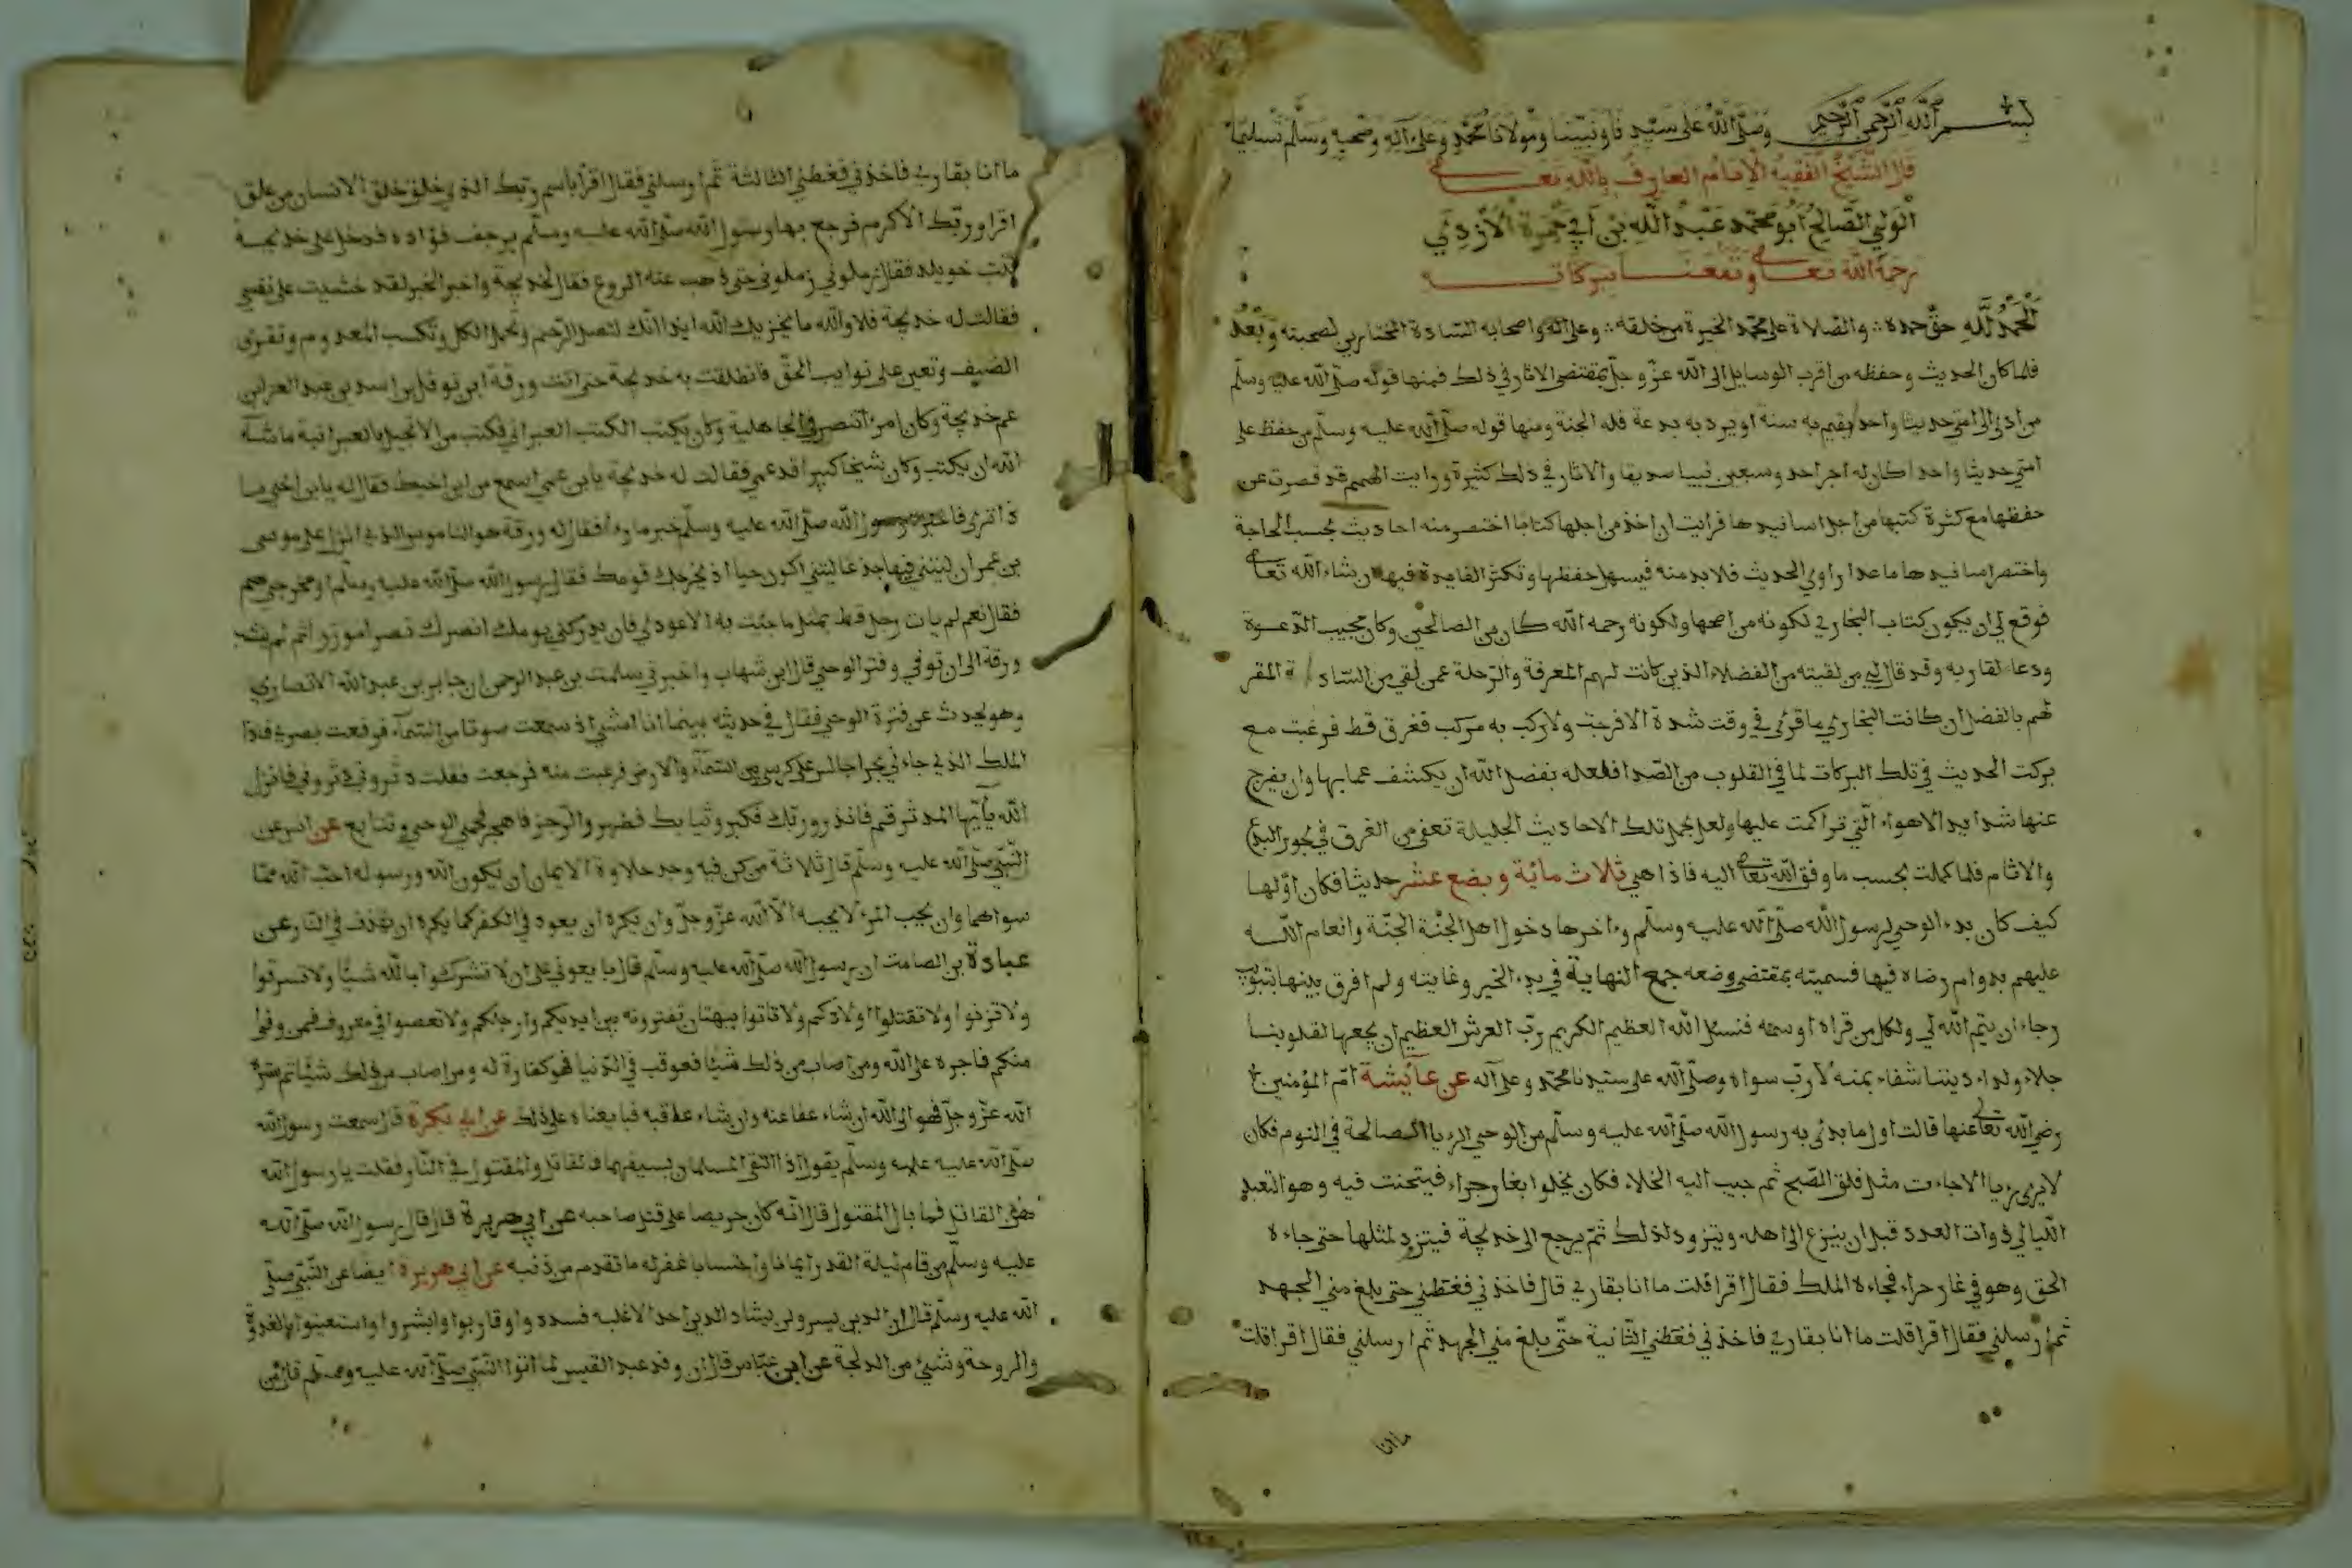 بسم الله الرحمن الرحيم وصلى الله على سيدنا ونبينا ومولانا محمد وعلى آله وصحبه وسلم تسليما
قال الشيخ الفقيه الامام العارف بالله تعالى
الولي الصالح ابو محمد عبد الله بن ابي جمرة الازدي
رحمه الله تعالى ونفعنا ببركاته
الحمد لله حق حمده والصلاة على محمد الخيرة من خلقه وعلى اله واصحابه السادة المختارين لصحبته وبعد
فلما كان الحديث وحفظه من اقرب الوسايل الى الله عز وجل بمقتضى الاثار في ذلك فمنها قوله صلى الله عليه وسلم
من ادى الى امتي حديثا واحدا يقيم به سنة او يرد به بدعة فله الجنة ومنها قوله صلى الله عليه وسلم من حفظ على
امتي حديثا واحدا كان له اجر احد وسبعين نبيا صديقا والاثار في ذلك كثيرة ورايت الهمم قد قصرت عن
حفظها مع كثرة كتبها من اجل اسانيدها فرايت ان اخذ من اجلها كتابا اختصر منه احاديث بحسب الحاجة
واختصر اسانيدها ما عدا راوي الحديث فلا بد منه فيسهل حفظها وتكثر الفايدة فيها ان شاء الله تعالى
فوقع لي ان يكون كتاب البخاري لكونه من اصحها ولكونه رحمه الله كان من الصالحين وكان مجيب الدعوة
ودعا لقاريه وقد قال لي من لقيته من الفضلاء الذين كانت لهم المعرفة والرحلة عمن لقي من السادة المقر
لهم بالفضل ان كانت البخاري ما قرئ في وقت شدة الا فرجت ولا ركب به مركب فغرق قط فرغبت مع
بركت الحديث في تلك البركات لما في القلوب من الصدا فلعله بفضل الله ان يكشف عما بها وان يفرج
عنها شدايد الاهواء التي تراكمت عليها ولعل بحمل تلك الاحاديث الجليلة تعفى من الغرق في بحور البدع
والاثام فلما كملت بحسب ما وفق الله تعالى اليه فاذا هي ثلاث مائة وبضع عشر حديثا فكان اولها
كيف كان بدء الوحي لرسول الله صلى الله عليه وسلم وءاخرها دخول اهل الجنة الجنة وانعام الله
عليهم بدوام رضاه فيها فسميته بمقتضى وضعه جمع النهاية في بدء الخير وغايته ولم افرق بينها بتبويب
رجاء ان يتم الله لي ولكل من قراه او سمعه فنسئل الله العظيم الكريم رب العرش العظيم ان يجعلها لقلوبنا
جلاء ولداء ديننا شفاء بمنه لا رب سواه وصلى الله على سيدنا محمد وعلى آله عن عائشة ام المؤمنين
رضي الله تعالى عنها قالت اول ما بدئ به رسول الله صلى الله عليه وسلم من الوحي الرءيا الصالحة في النوم فكان
لا يرى رءيا الا جاءت مثل فلق الصبح ثم حبب اليه الخلاء فكان يخلوا بغار حراء فيتحنث فيه وهو التعبد
الليالي ذوات العدد قبل ان ينزع الى اهله ويتزود لذلك ثم يرجع الى خديجة فيتزود لمثلها حتى جاءه
الحق وهو في غار حراء فجاءه الملك فقال اقرا قلت ما انا بقاري قال فاخذني فغطني حتى بلغ مني الجهد
ثم ارسلني فقال اقرا قلت ما انا بقاري فاخذني فغطني الثانية حتى بلغ مني الجهد ثم ارسلني فقال اقرا قلت
ما انا
ما انا بقاري فاخذني فغطني الثالثة ثم ارسلني فقال اقرا باسم ربك الذي خلق خلق الانسان من علق
اقرا وربك الاكرم فرجع بها رسول الله صلى الله عليه وسلم يرجف فؤاده فدخل على خديجة
بنت خويلد فقال زملوني زملوني حتى ذهب عنه الروع فقال لخديجة واخبر الخبر لقد خشيت على نفسي
فقالت له خديجة فلا والله ما يخزيك الله ابدا انك لتصل الرحم وتحمل الكل وتكسب المعدوم وتقرى
الضيف وتعين على نوايب الحق فانطلقت به خديجة حتى اتت ورقة ابن نوفل بن اسد بن عبد العزى ابن
عم خديجة وكان امرءا تنصر في الجاهلية وكان يكتب الكتب العبراني فكتب من الانجيل بالعبرانية ما شاء
الله ان يكتب وكان شيخا كبيرا قد عمي فقالت له خديجة يا بن عمي اسمع من ابن اخيك فقال له يا بن اخي ما
ذا ترى فاخبره رسول الله صلى الله عليه وسلم خبر ما رءا فقال له ورقة هو الناموس الذي انزل على موسى
بن عمران ليتني فيها جذعا ليتني اكون حيا اذ يخرجك قومك فقال رسول الله صلى الله عليه وسلم او مخرجي هم
فقال نعم لم يات رجل قط بمثل ما جئت به الا عودي فان يدركني يومك انصرك نصرا موزرا ثم لم ينشب
ورقة الى ان توفي وفتر الوحي قال ابن شهاب واخبرني سلمت بن عبد الرحمن ان جابر بن عبد الله الانصاري
وهو يحدث عن فترة الوحي فقال في حديثه بينما انا امشي اذ سمعت صوتا من السماء فرفعت بصري فاذا
الملك الذي جاءني بحرا جالس على كرسي بين السماء والارض فرعبت منه فرجعت فقلت دثروني دثروني فانزل
الله يايها المدثر قم فانذر وربك فكبر وثيابك فطهر والرجز فاهجر فحمي الوحي وتتابع عن انس عن
النبي صلى الله عليه وسلم قال ثلاثة من كن فيه وجد حلاوة الايمان ان يكون الله ورسوله احب الله مما
سواهما وان يحب المرء لا يحبه الا الله عز وجل وان يكره ان يعود في الكفر كما يكره ان يقذف في النار عن
عبادة بن الصامت ان رسول الله صلى الله عليه وسلم قال بايعوني على ان لا تشركوا بالله شيئا ولا تسرقوا
ولا تزنوا ولا تقتلوا اولادكم ولا تاتوا ببهتان تفترونه بين ايديكم وارجلكم ولا تعصوا في معروف فمن وفى
منكم فاجره على الله ومن اصاب من ذلك شيئا فعوقب في الدنيا فهو كفارة له ومن اصاب من ذلك شيئا ثم ستره
الله عز وجل فهو الى الله ان شاء عفا عنه وان شاء عاقبه فبايعناه على ذلك عن ابي بكرة قال سمعت رسول الله
صلى الله عليه عليه وسلم يقول اذا التقى المسلمان بسيفيهما فالقاتل والمقتول في النار فقلت يا رسول الله
هذا القاتل فما بال المقتول قال انه كان حريصا على قتل صاحبه عن ابي هريرة قال قال رسول الله صلى الله
عليه وسلم من قام ليلة القدر ايمانا واحتسابا غفر له ما تقدم من ذنبه عن ابي هريرة ايضا عن النبي صلى
الله عليه وسلم قال ان الدين يسر ولن يشاد الدين احد الا غلبه فسددوا وقاربوا وابشروا واستعينوا بالغدوة
والروحة وشيئ من الدلجة عن ابن عباس قال ان وفد عبد القيس لما اتوا النبي صلى الله عليه وسلم قال من